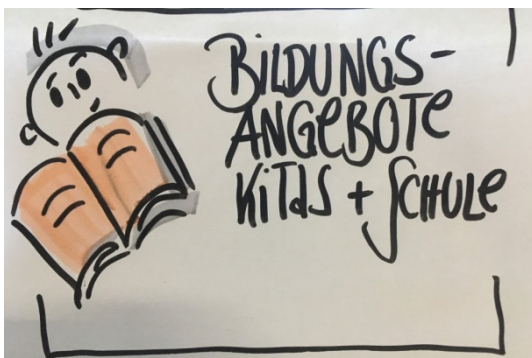 BILDUNGS-
ANGEBOTE
KiTAS + SCHULE